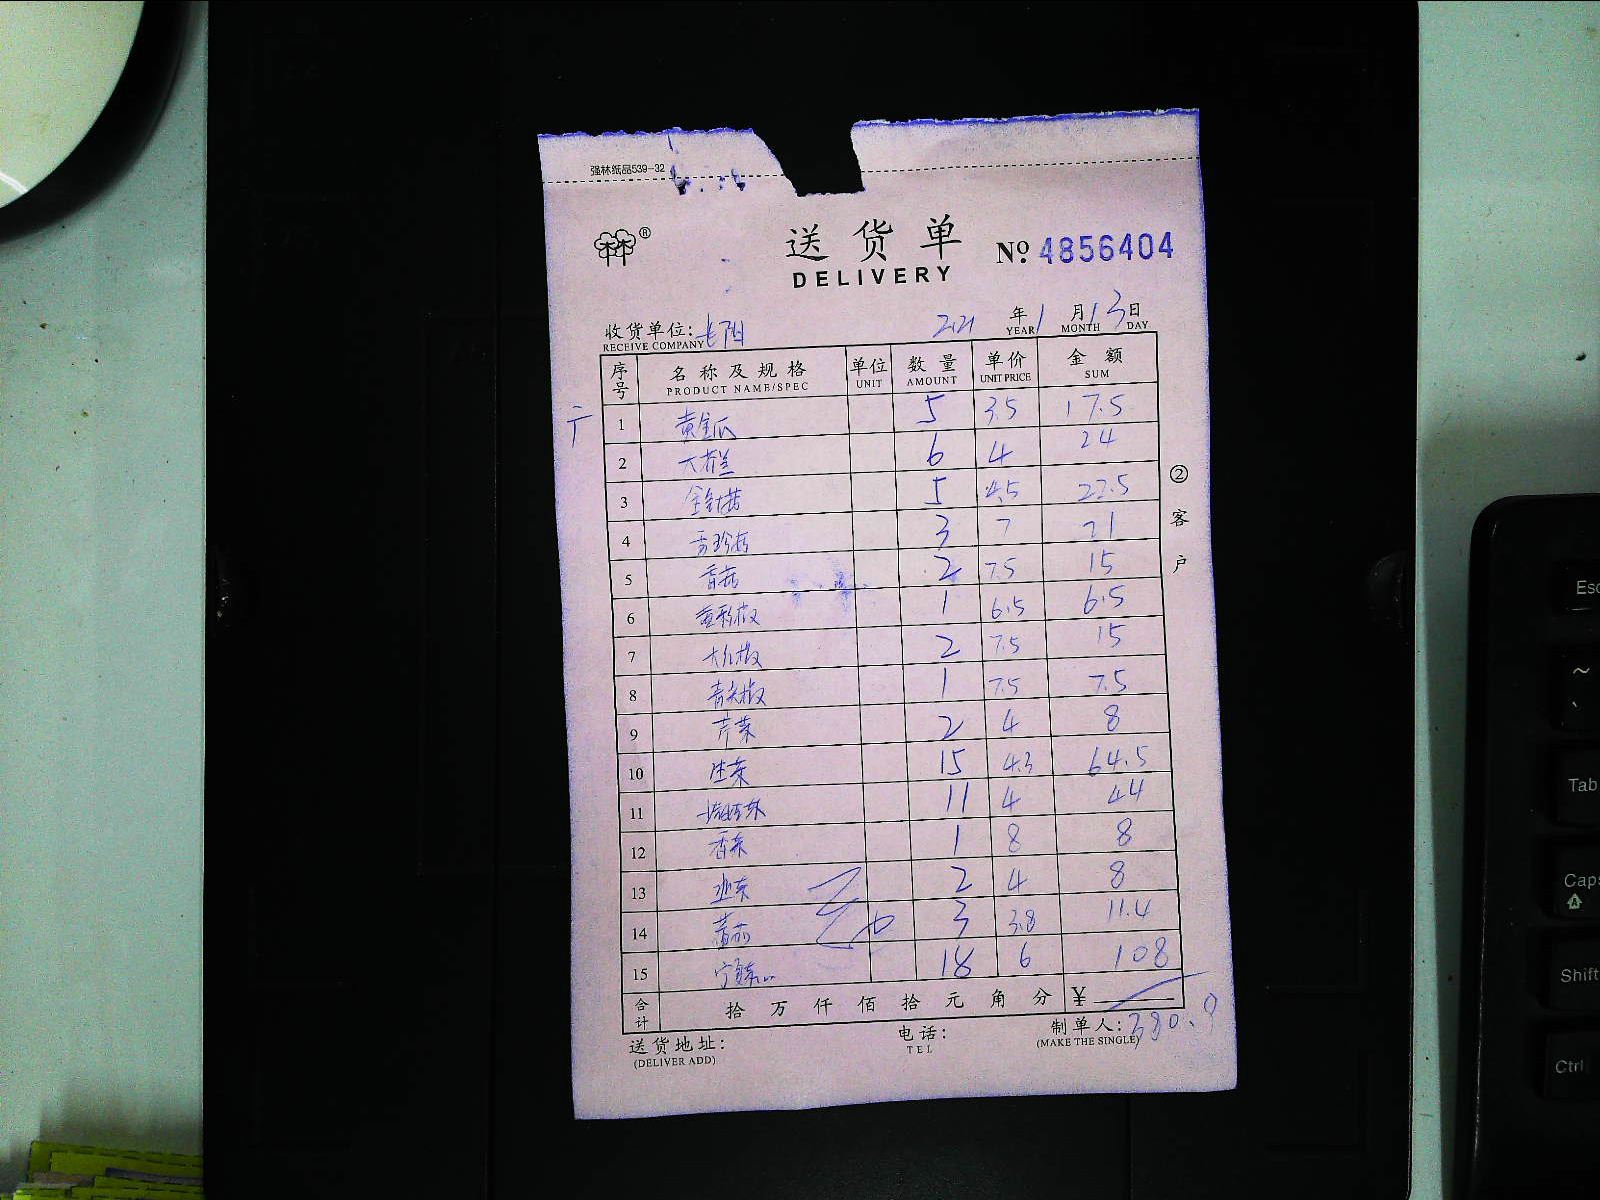 强林纸品539-32
® 送货单 Nº 4856404
DELIVERY
收货单位: 长阳 2021 年 1 月 13 日
RECEIVE COMPANY YEAR MONTH DAY
序号 名称及规格 单位 数量 单价 金额
PRODUCT NAME/SPEC UNIT AMOUNT UNIT PRICE SUM
1 黄金瓜 5 3.5 17.5
2 6 4 24
3 金针菇 5 4.5 22.5
4 秀珍菇 3 7 21
5 香菇 2 7.5 15
6 黄彩椒 1 6.5 6.5
7 大红椒 2 7.5 15
8 青尖椒 1 7.5 7.5
9 芹菜 2 4 8
10 生菜 15 4.3 64.5
11 11 4 44
12 香菜 1 8 8
13 2 4 8
14 3 3.8 11.4
15 18 6 108
合计 拾 万 仟 佰 拾 元 角 分 ¥
380.9
送货地址: 电话: 制单人:
(DELIVER ADD) TEL (MAKE THE SINGLE)
② 客户
Esc
~
`
Tab
Caps
Shift
Ctrl